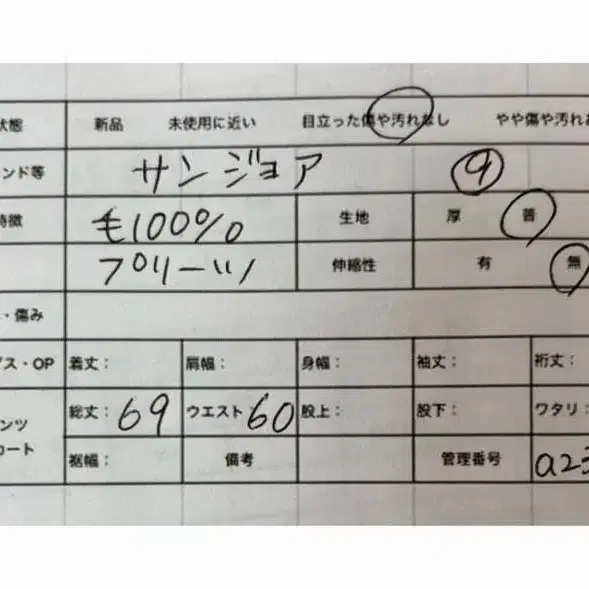 状態 新品 未使用に近い 目立った傷や汚れなし やや傷や汚れあ
ンド等 サンジョア 9
特徴 毛100% 生地 厚 普
プリーツ 伸縮性 有 無
・傷み
ス・OP 着丈: 肩幅: 身幅: 袖丈: 裄丈:
ンツ 総丈:69 ウエスト60 股上: 股下: ワタリ:
カート 裾幅: 備考 管理番号 a23